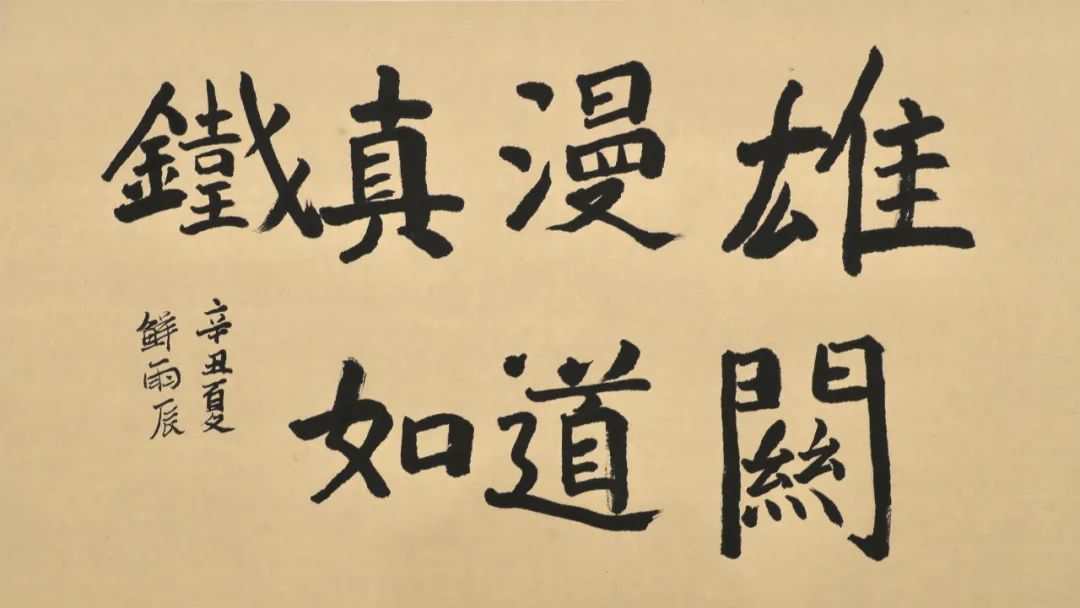 雄關
漫道
真如
鐵
辛丑夏
鲜雨辰